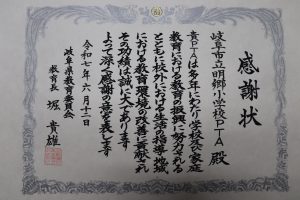 感謝状
岐阜市立明郷小学校PTA殿
貴PTAは多年にわたり学校及び家庭
教育における教育の振興に努力される
とともに校外における生活の指導地域
における教育環境の改善に貢献され
その功績は誠に大であります
よって深く感謝の意を表します
令和七年六月十三日
岐阜県教育委員会
教育長 堀 貴雄